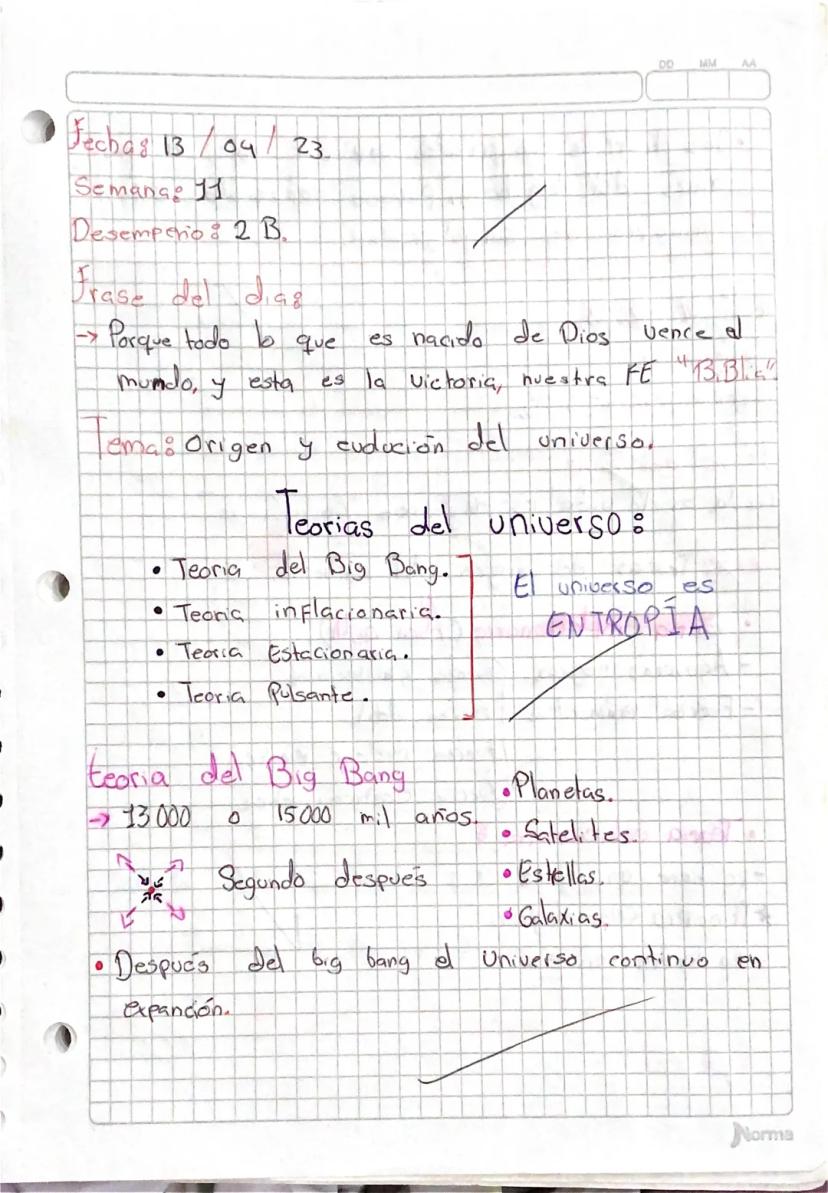 DD MM AA
Fecha: 13 / 04 / 23.
Semana: 11
Desempeño: 2 B.
Frase del dia:
→ Porque todo lo que es nacido de Dios vence el
mundo, y esta es la victoria, nuestra FE
Tema: Origen y evolución del universo.
Teorias del universo:
• Teoria del Big Bang.
• Teoria inflacionaria.
• Teoria Estacionaria.
• Teoria Pulsante.
El universo es
ENTROPÍA
teoria del Big Bang
→ 13000 o 15000 mil años.
Segundo después
• Planetas.
• Satelites.
• Estrellas.
• Galaxias.
• Después del big bang el universo continuo en
expanción.
Norma